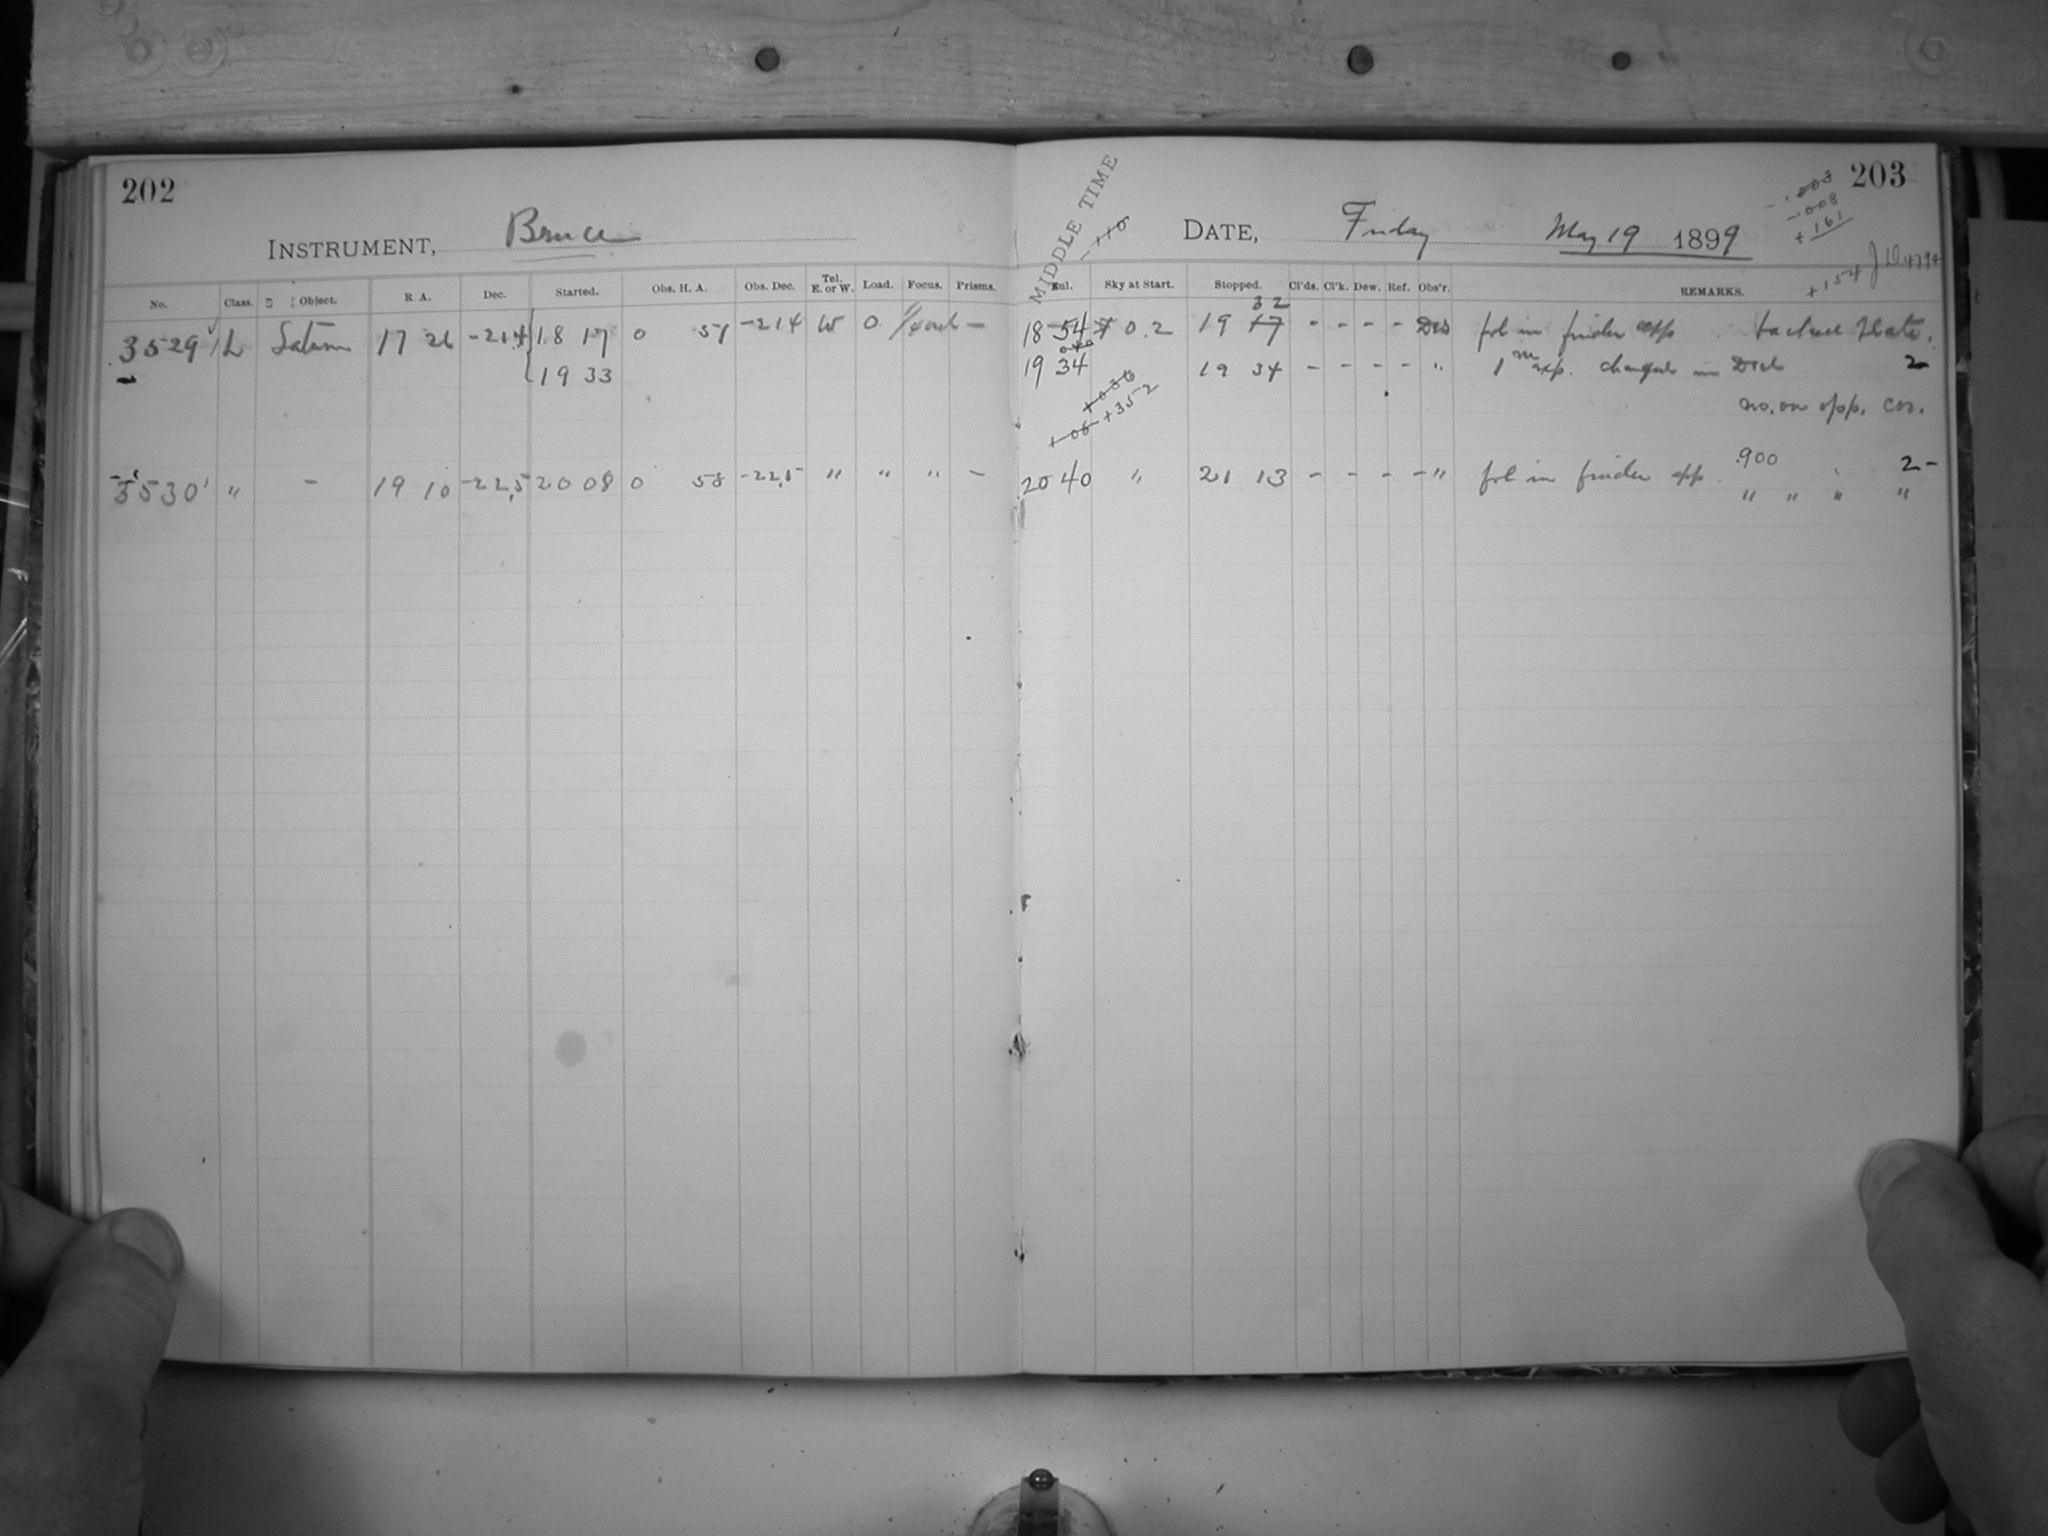 202
203
INSTRUMENT, Bruce
MIDDLE TIME
DATE, Friday May 19 1899
-.003
-.008
+161
+154
-110
No. Class. Object. R. A. Dec. Started. Obs. H. A. Obs. Dec. Tel. E. or W. Load. Focus. Prisms. Enl. Sky at Start. Stopped. Cl'ds. Cl'k. Dew. Ref. Obs'r. REMARKS.
32
3529 L Saturn 17 26 -21.4 18 17 0 51 -21.4 W 0 - 18 54 0.2 19 17 - - - - DES fol in finder app Plate.
19 33 19 34 19 34 - - - - " 1m exp. change in Decl 2
+352
no. on opp. cor.
.900
3530 " - 19 10 -22.5 20 08 0 58 -22.5 " " " - 20 40 " 21 13 - - - - " fol in finder app 2-
" " " "